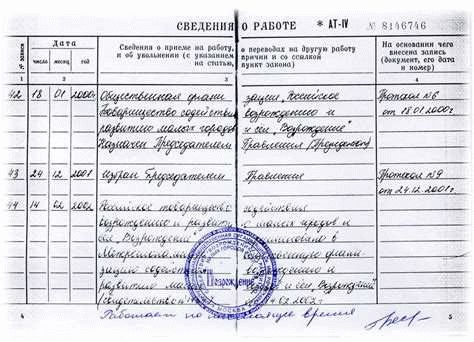 СВЕДЕНИЯ О РАБОТЕ * АТ-IV № 8146746
№ записи
Дата
число месяц год
Сведения о приеме на работу, о переводах на другую работу
и об увольнении (с указанием причин и со ссылкой
на статью, пункт закона)
На основании чего
внесена запись
(документ, его дата
и номер)
1 2 3 4
42 18 01 2000г. Общественная организация, Российское Протокол №6
Товарищество содействия возрождению и от 18.01.2000г.
развитию малых городов и сел "Возрождение"
Назначен Председателем Правления (Президентом)
43 24 12 2001 избран Председателем Правления Протокол №9
от 24.12.2001г.
44 14 02 2002 Российское товарищество содействия
возрождению и развитию малых городов и
сел "Возрождение"
содействия возрождению и
развитию малых городов и сел "Возрождение"
Возрождение
МОСКВА
4 5
Работает по настоящее время